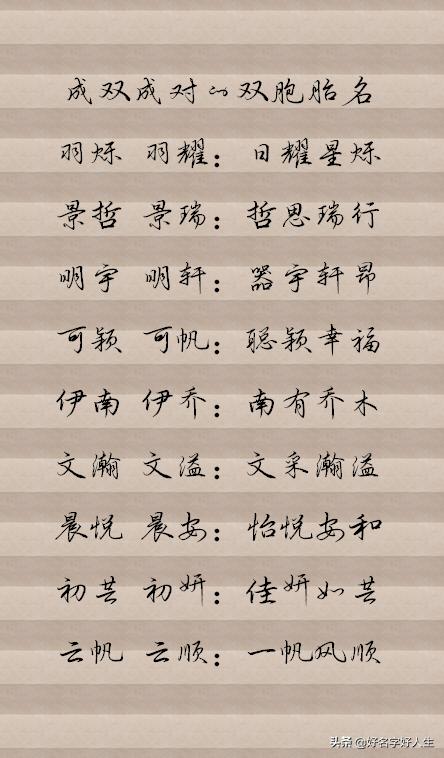 成双成对的双胞胎名
羽烁 羽耀：日耀星烁
景哲 景瑞：哲思瑞行
明宇 明轩：器宇轩昂
可颖 可帆：聪颖幸福
伊南 伊乔：南有乔木
文瀚 文溢：文采瀚溢
晨悦 晨安：怡悦安和
初芸 初妍：佳妍如芸
云帆 云顺：一帆风顺
头条 @好名字好人生